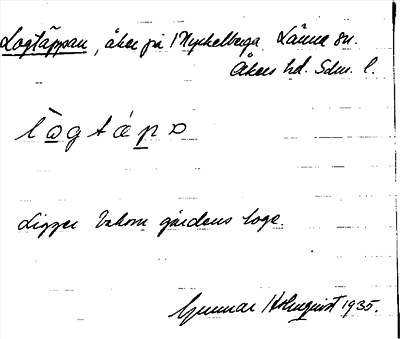 Logtäppan, åker på Myckelberga Länna sn.
Åkers hd. Sdm. l.
lo̲gtáp̲o
Ligger bakom gårdens loge.
Gunnar Holmquist 1935.